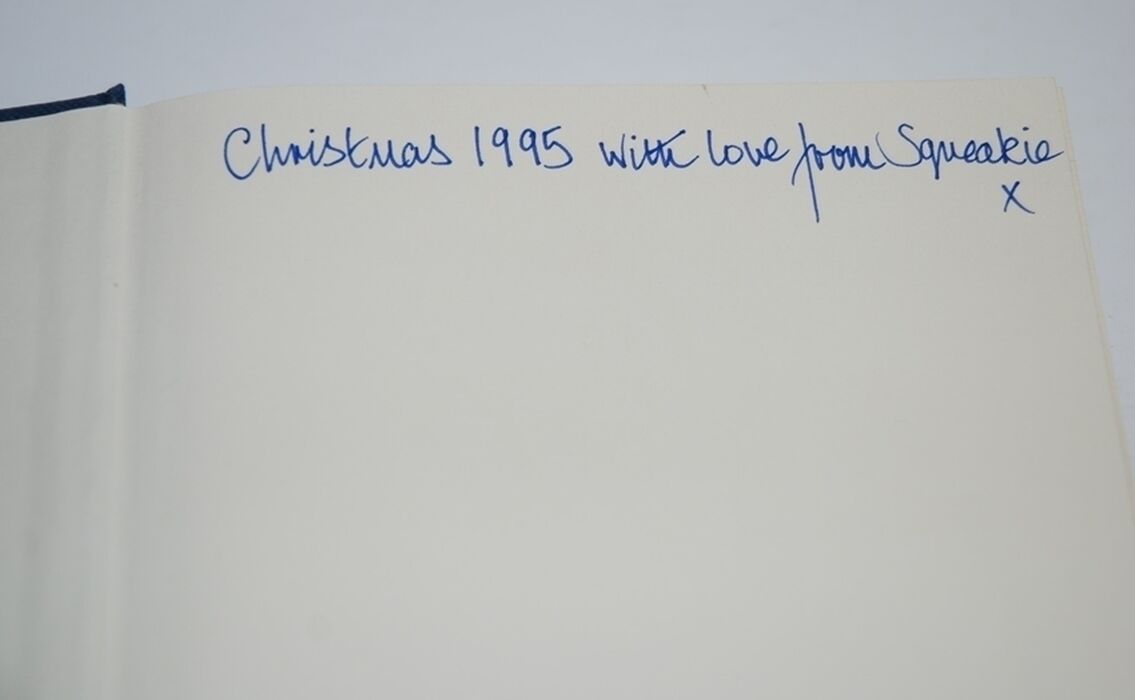 Christmas 1995 with love from Squeakie
x